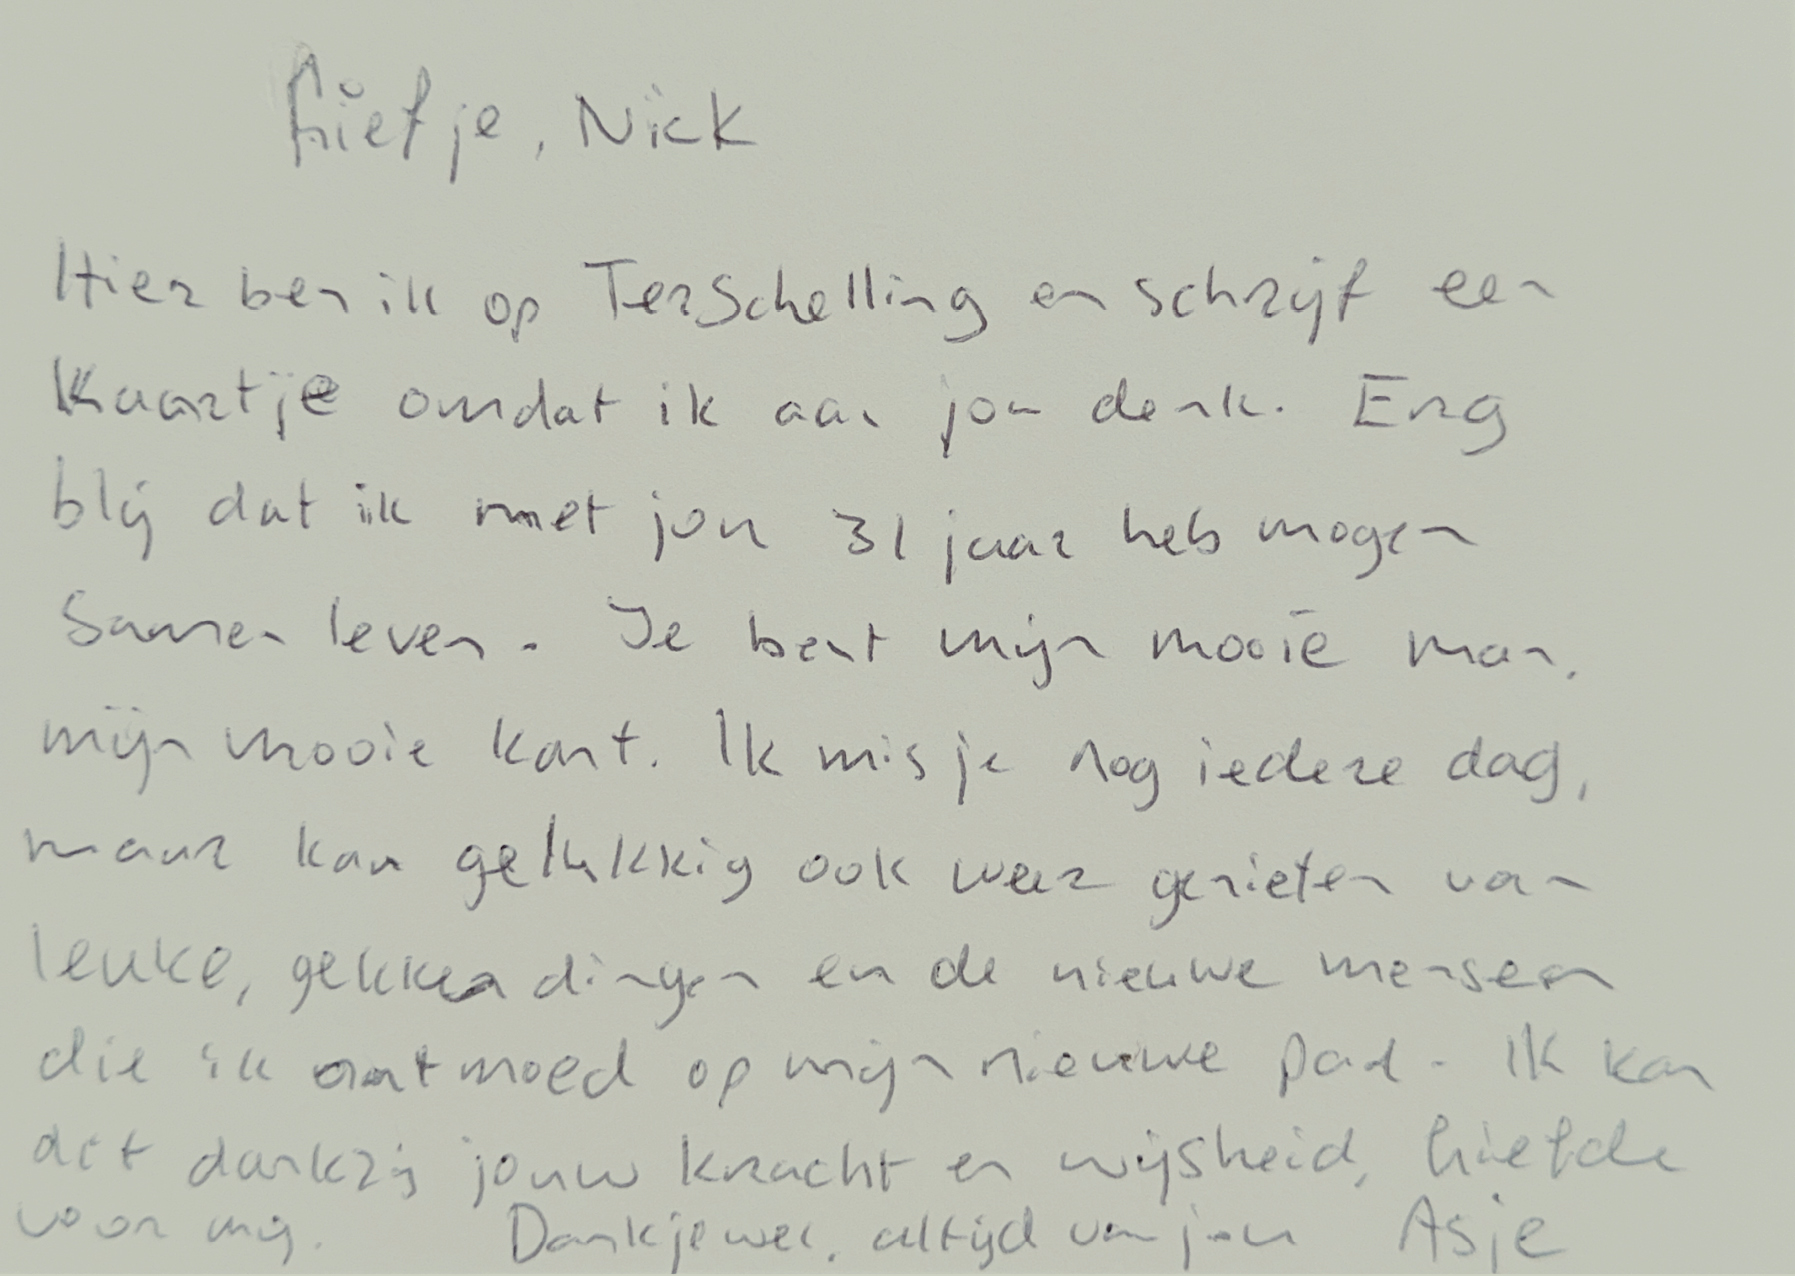 Liefje, Nick
Hier ben ik op Terschelling en schrijf een
Kaartje omdat ik aan jou denk. Erg
blij dat ik met jou 31 jaar heb mogen
Samen leven. Je bent mijn mooie man,
mijn mooie kant. Ik mis je nog iedere dag,
maar kan gelukkig ook weer genieten van
leuke, gekke dingen en de nieuwe mensen
die ik ontmoed op mijn nieuwe pad. Ik kan
dit dankzij jouw kracht en wijsheid, liefde
voor mij. Dankjewel, altijd van jou Asje